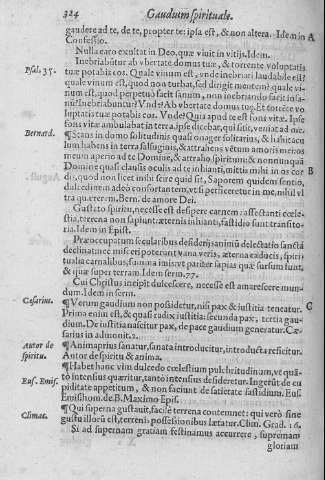 324 Gaudium spirituale.
gaudere ad te, de te, propter te: ipsa est, & non altera. Idem in A
Confessio.
Nulla caro exultat in Deo, quæ viuit in vitijs. Idem.
Psal. 35. Inebriabūtur ab vbertate domus tuæ, & torrente voluptatis
tuæ potabis eos. Quale vinum est, vnde inebriari laudabile est?
quale vinum est, quod non turbat, sed dirigit mentem? quale vi-
num est, quod perpetuo facit sanum, non inebriando facit insa-
nū? Inebriabuntur? Vnde? Ab vbertate domus tuę. Et torrēte vo
luptatis tuæ potabis eos. Vnde? Quia apud te est fons vitæ. Ipse
fons vitæ ambulabat in terra, ipse dicebat, qui sitit, veniat ad me.
Bernard. ¶ Stans in domo solitudinis quasi onager solitarius, & habitacu
lum habens in terra salsuginis, & attrahens vētum amoris mei, os
meum aperio ad te Domine, & attraho spiritum: & nonnunquā
Domine quasi clausis oculis ad te inhianti, mittis mihi in os cor B
dis, quod non licet mihi scire quid sit. Saporem quidem sentio,
dulcedinem adeò confortantem, vt si perficeretur in me, nihil vl
tra quærerem. Bern. de amore Dei.
Gustato spiritu, necesse est desipere carnem: affectanti cœle-
stia, terrena non sapiunt: æternis inhianti, fastidio sunt transito-
ria. Idem in Epist.
Præoccupatum sæcularibus desiderijs animū delectatio sancta
declinat: nec misceri poterunt vana veris, æterna caducis, spiri-
tualia carnalibus, summa imis: vt pariter sapias quæ sursum sunt,
& quæ super terram. Idem serm. 77.
Cui Christus incipit dulcescere, necesse est amarescere mun-
dum. Idem in serm.
Cæsarius. ¶ Verum gaudium non possidetur, nisi pax & iustitia teneatur. C
Prima enim est, & quasi radix iustitia: secunda pax, tertia gau-
dium. De iustitia nascitur pax, de pace gaudium generatur. Cæ-
sarius in admonit. 2.
Autor de spiritu. ¶ Anima prius sanatur, sanata introducitur, introducta reficitur.
Autor de spiritu & anima.
Eus. Emis. ¶ Habet hanc vim dulcedo cœlestium pulchritudinam, vt quā-
tò intensius quæritur, tantò intensius desideretur. Ingerūt de cu
piditate appetitum, & non faciunt de satietate fastidium. Eus.
Emis. hom. de B. Maximo Epis.
Climac. ¶ Qui superna gustauit, facile terrena contemnet: qui verò sine
gustu illorū est, terrenis possessionibus lætatur. Clim. Grad. 16.
Si ad supernam gratiam festinamus accurrere, supremam
gloriam